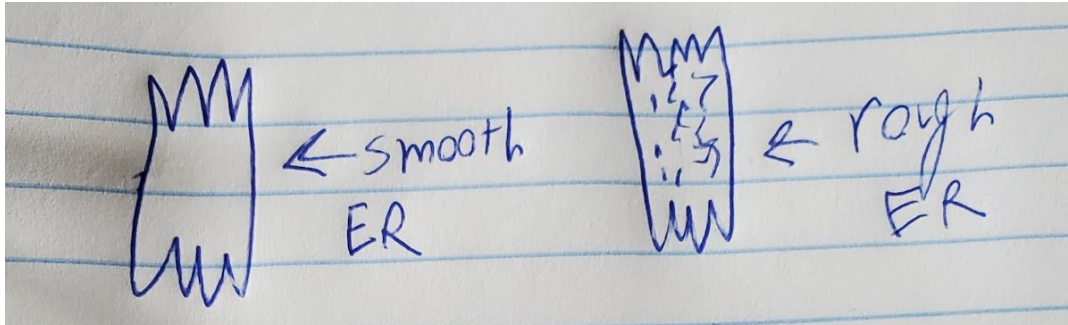 smooth
ER
rough
ER